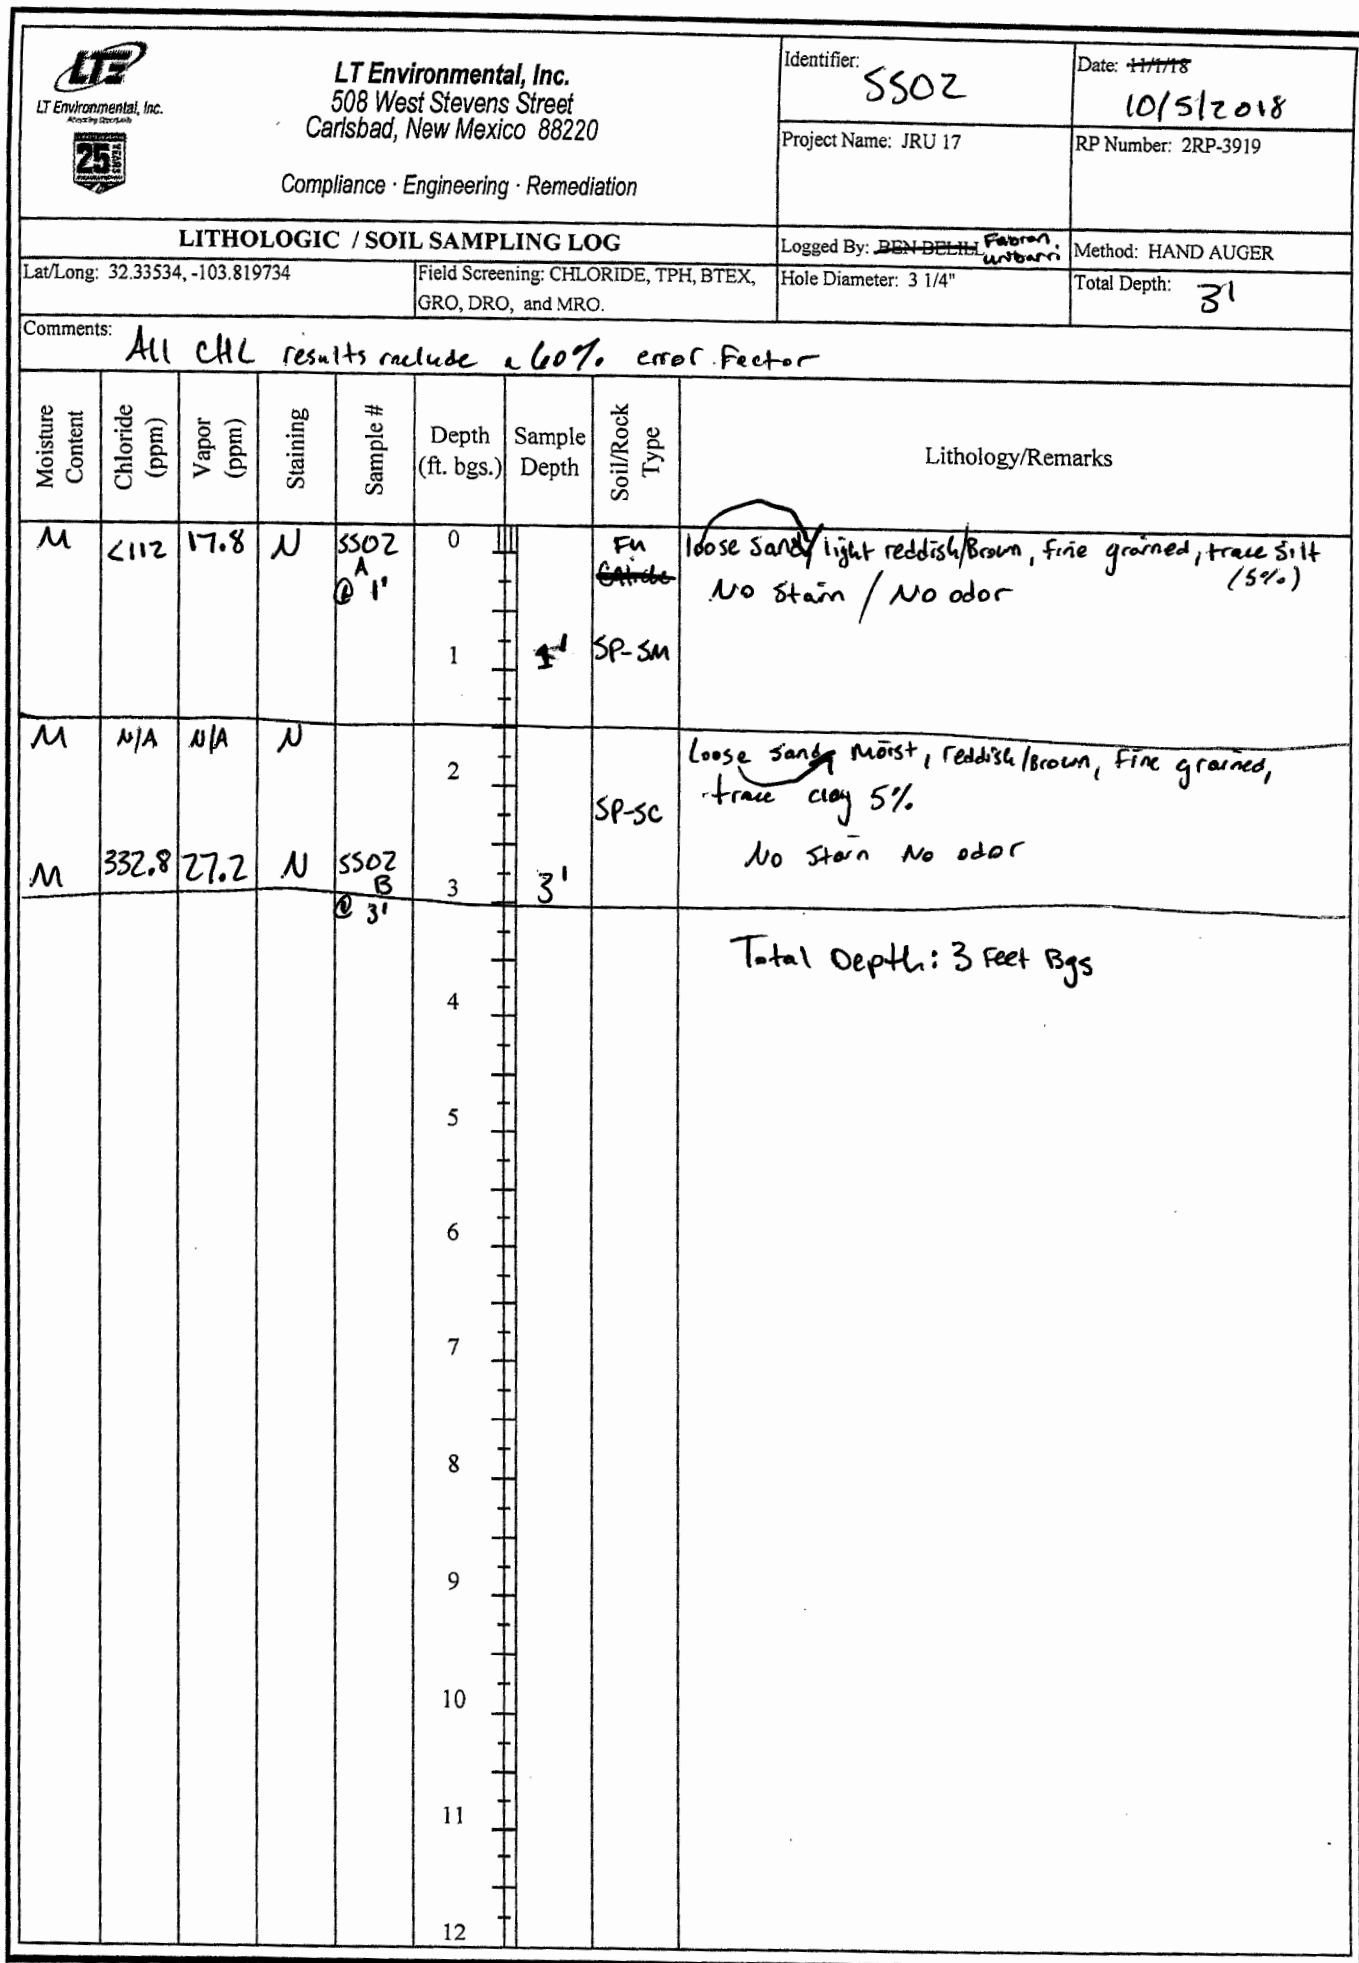 LTE
LT Environmental, Inc.
25 YEARS
LT Environmental, Inc.
508 West Stevens Street
Carlsbad, New Mexico 88220
Compliance · Engineering · Remediation
Identifier: SS02
Date: 11/1/18
10/5/2018
Project Name: JRU 17
RP Number: 2RP-3919
LITHOLOGIC / SOIL SAMPLING LOG
Logged By: BEN BELILL Fabian
Method: HAND AUGER
Lat/Long: 32.33534, -103.819734
Field Screening: CHLORIDE, TPH, BTEX,
GRO, DRO, and MRO.
Hole Diameter: 3 1/4"
Total Depth: 3'
Comments: All CHL results include a 60% error factor
Moisture Content
Chloride (ppm)
Vapor (ppm)
Staining
Sample #
Depth (ft. bgs.)
Sample Depth
Soil/Rock Type
Lithology/Remarks
M <112 17.8 N SS02 A @ 1' 0
loose sand light reddish/Brown, fine grained, trace silt (5%)
No stain / No odor
1 1' SP-SM
M N/A N/A N
2
Loose sand moist, reddish/Brown, Fine grained,
trace clay 5%
SP-SC
No stain No odor
M 332.8 27.2 N SS02 B @ 3' 3 3'
Total Depth: 3 Feet Bgs
4
5
6
7
8
9
10
11
12